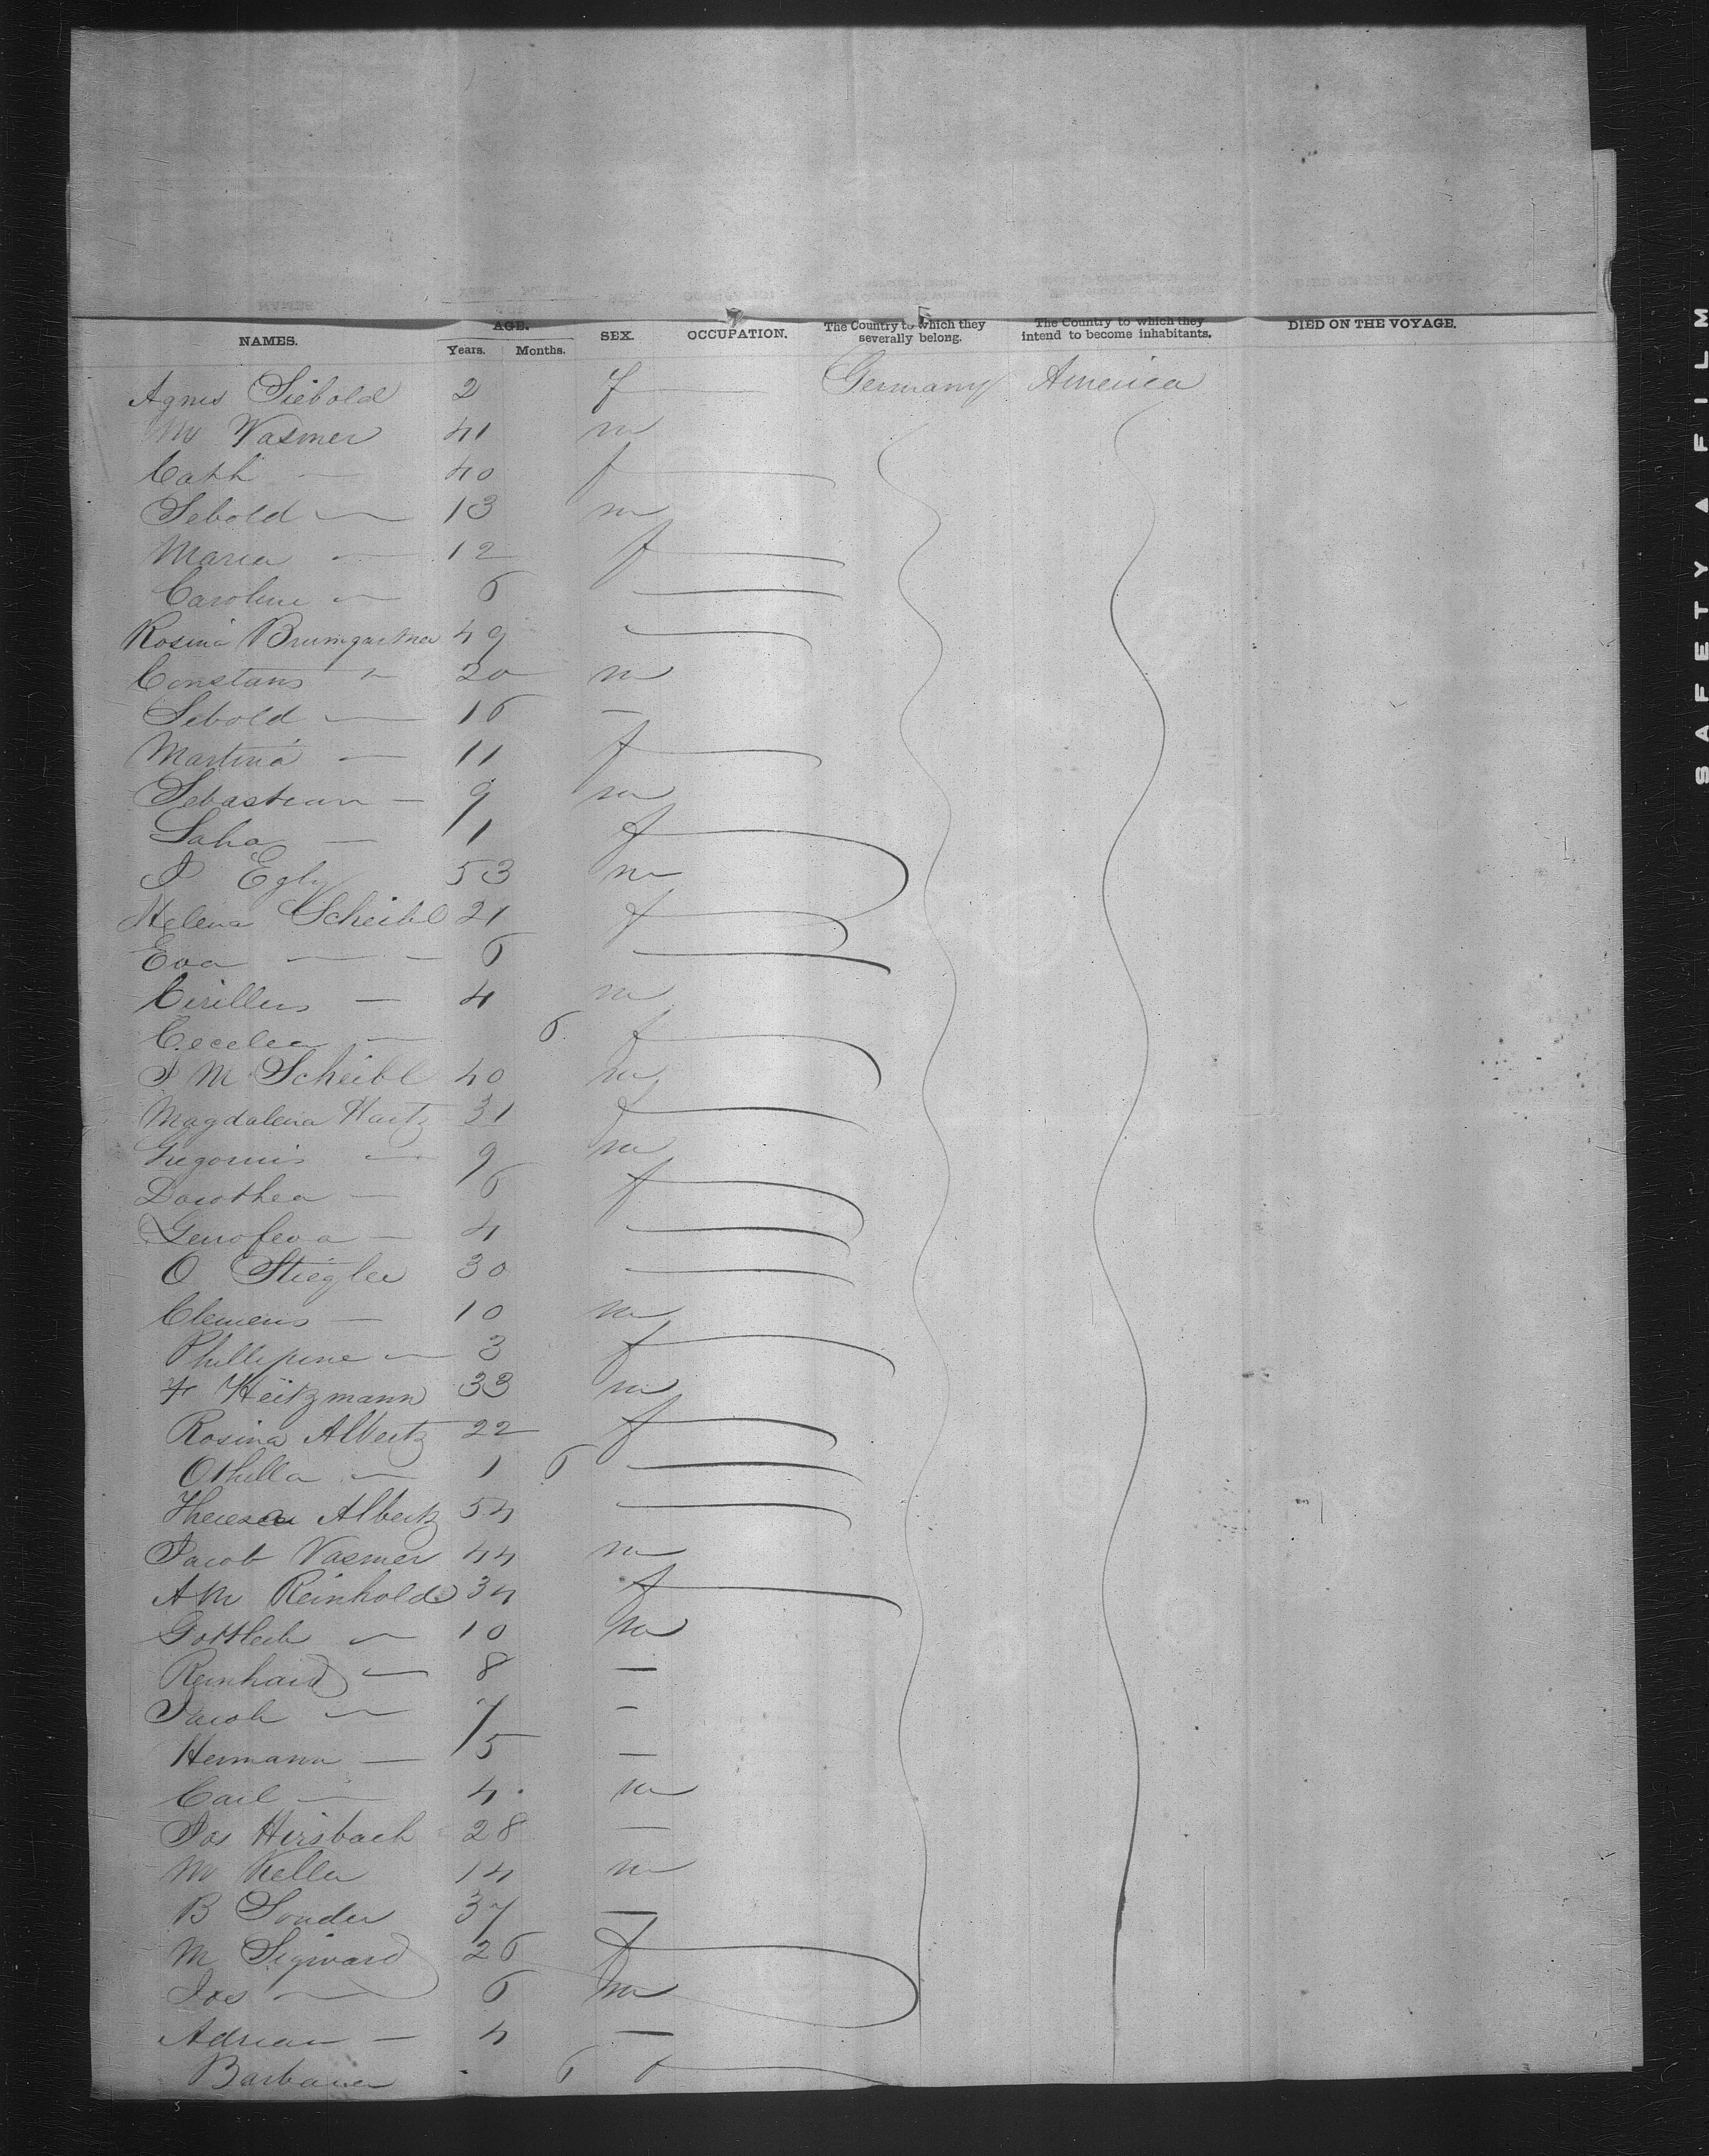 NAMES. AGE. SEX. OCCUPATION. The Country to which they severally belong. The Country to which they intend to become inhabitants. DIED ON THE VOYAGE.
Years. Months.
Agnes Siebold 2 f — Germany America
M Vasmer 41 m
Cath — 40 f
Sebold — 13 m
Maria — 12 f
Caroline — 6 —
Rosina Brumgartner 49 —
Constans " 20 m
Sebold — 16 —
Martina — 11 f
Sebastian — 9 m
— 1 f
J Egly 53 m
Helena Scheibl 21 f
Eva — — 6 —
Cirillus — 4 m
Cecelea — 6 f
J M Scheibl 40 m
Magdalena Hartz 31 f
Gregorius — 9 m
Dorothea — 6 f
Genofeva — 4 —
O Stiegler 30 —
Clemens — 10 m
Phillipine — 3 f
F Heitzmann 33 m
Rosina Albertz 22 f
Othilla — 1 6 —
Theresa Albertz 54 —
Jacob Vasmer 44 m
A M Reinhold 34 f
Gottlieb — 10 m
Reinhard — 8 —
Jacob — 7 —
Hermann — 5 —
Carl — 4 m
Jos Hirsbach 28 —
M Keller 14 m
B Souder 37 —
M Sigward 26 f
Jos — 6 m
Adrian — 4 —
Barbara 6 f
SAFETY ▲ FILM